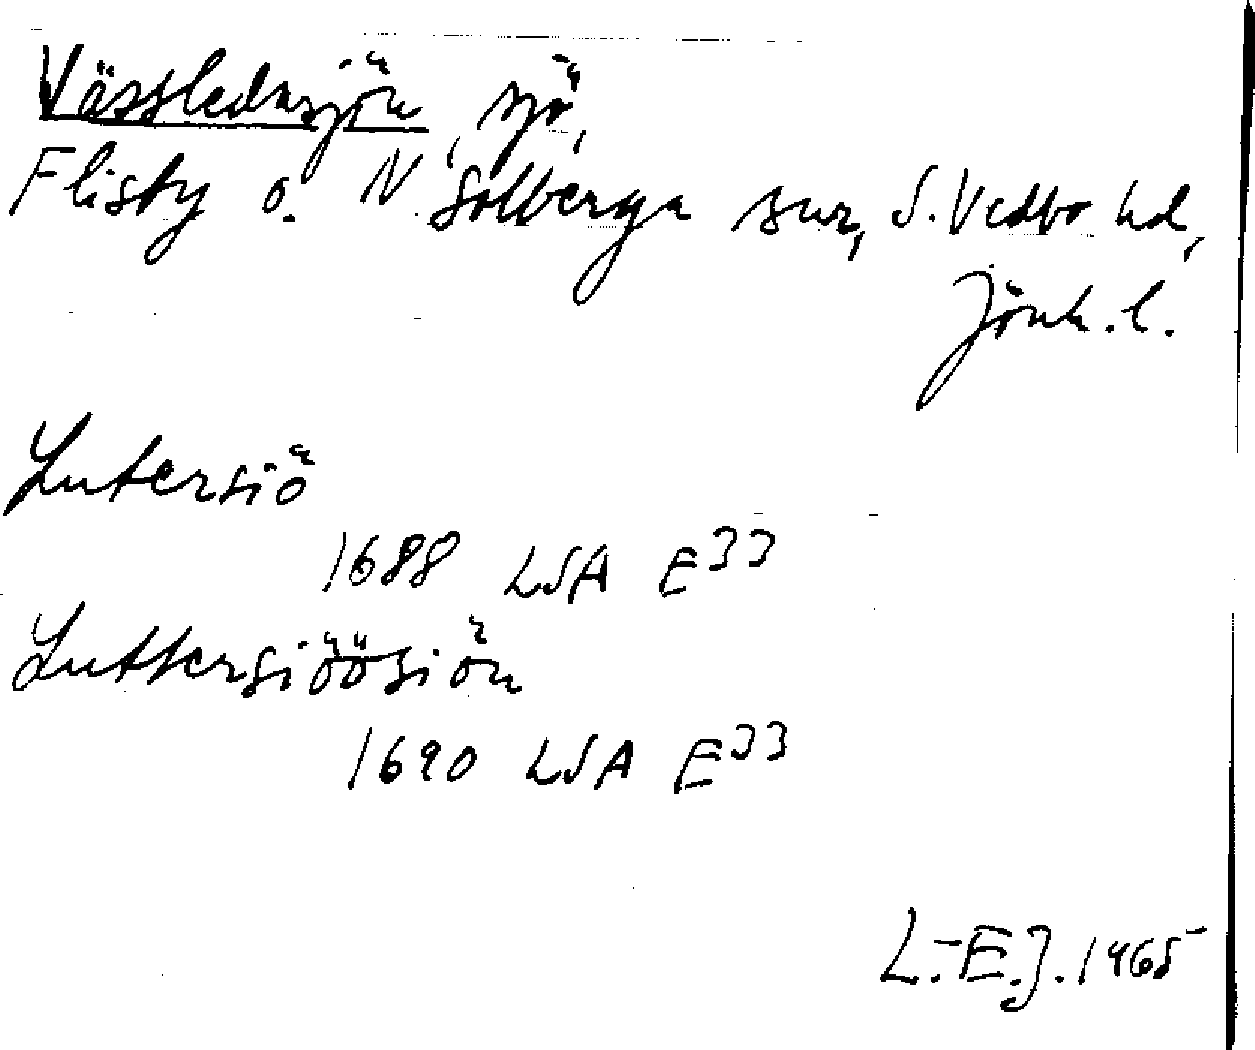 Vässledasjön, sjö,
Flisby o. N. Solberga snr, S. Vedbo hd,
Jönk. l.
Lutersiö
1688 LSA E33
Luttersiöösiön
1690 LSA E33
L.-E.J. 1965